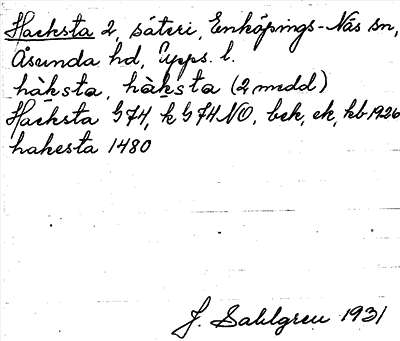 Hacksta 2, säteri, Enköpings-Näs sn,
Åsunda hd, Upps. l.
hàksta, hàksta (2 medd)
Hacksta G74, k G74NO, bek, ek, kb 1926
hakesta 1480
J. Sahlgren 1931